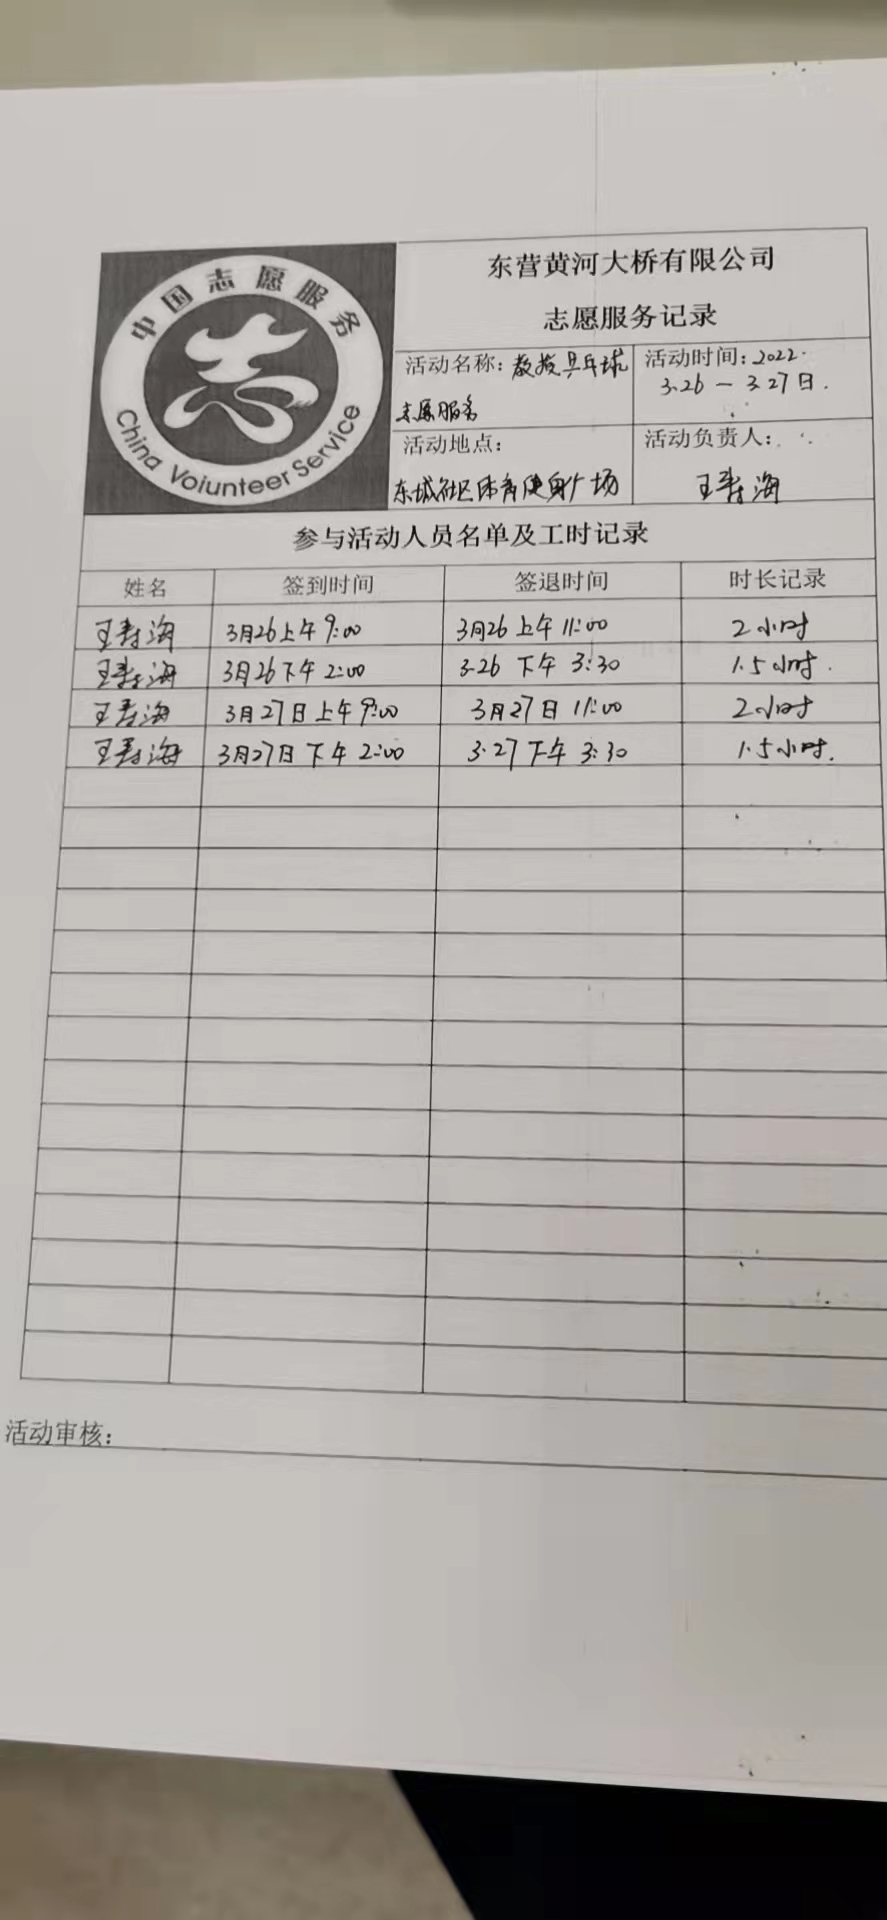 中国志愿服务
China Voiunteer Service
东营黄河大桥有限公司
志愿服务记录
活动名称：教授乒乓球
志愿服务
活动时间：2022.
3.26 — 3.27日.
活动地点：
东城社区体育健身广场
活动负责人：
王寿海
参与活动人员名单及工时记录
姓名 签到时间 签退时间 时长记录
王寿海 3月26上午9:00 3月26上午11:00 2小时
王寿海 3月26下午2:00 3.26 下午 3:30 1.5小时.
王寿海 3月27日上午9:00 3月27日 11:00 2小时
王寿海 3月27日下午2:00 3.27下午 3:30 1.5小时.
活动审核：